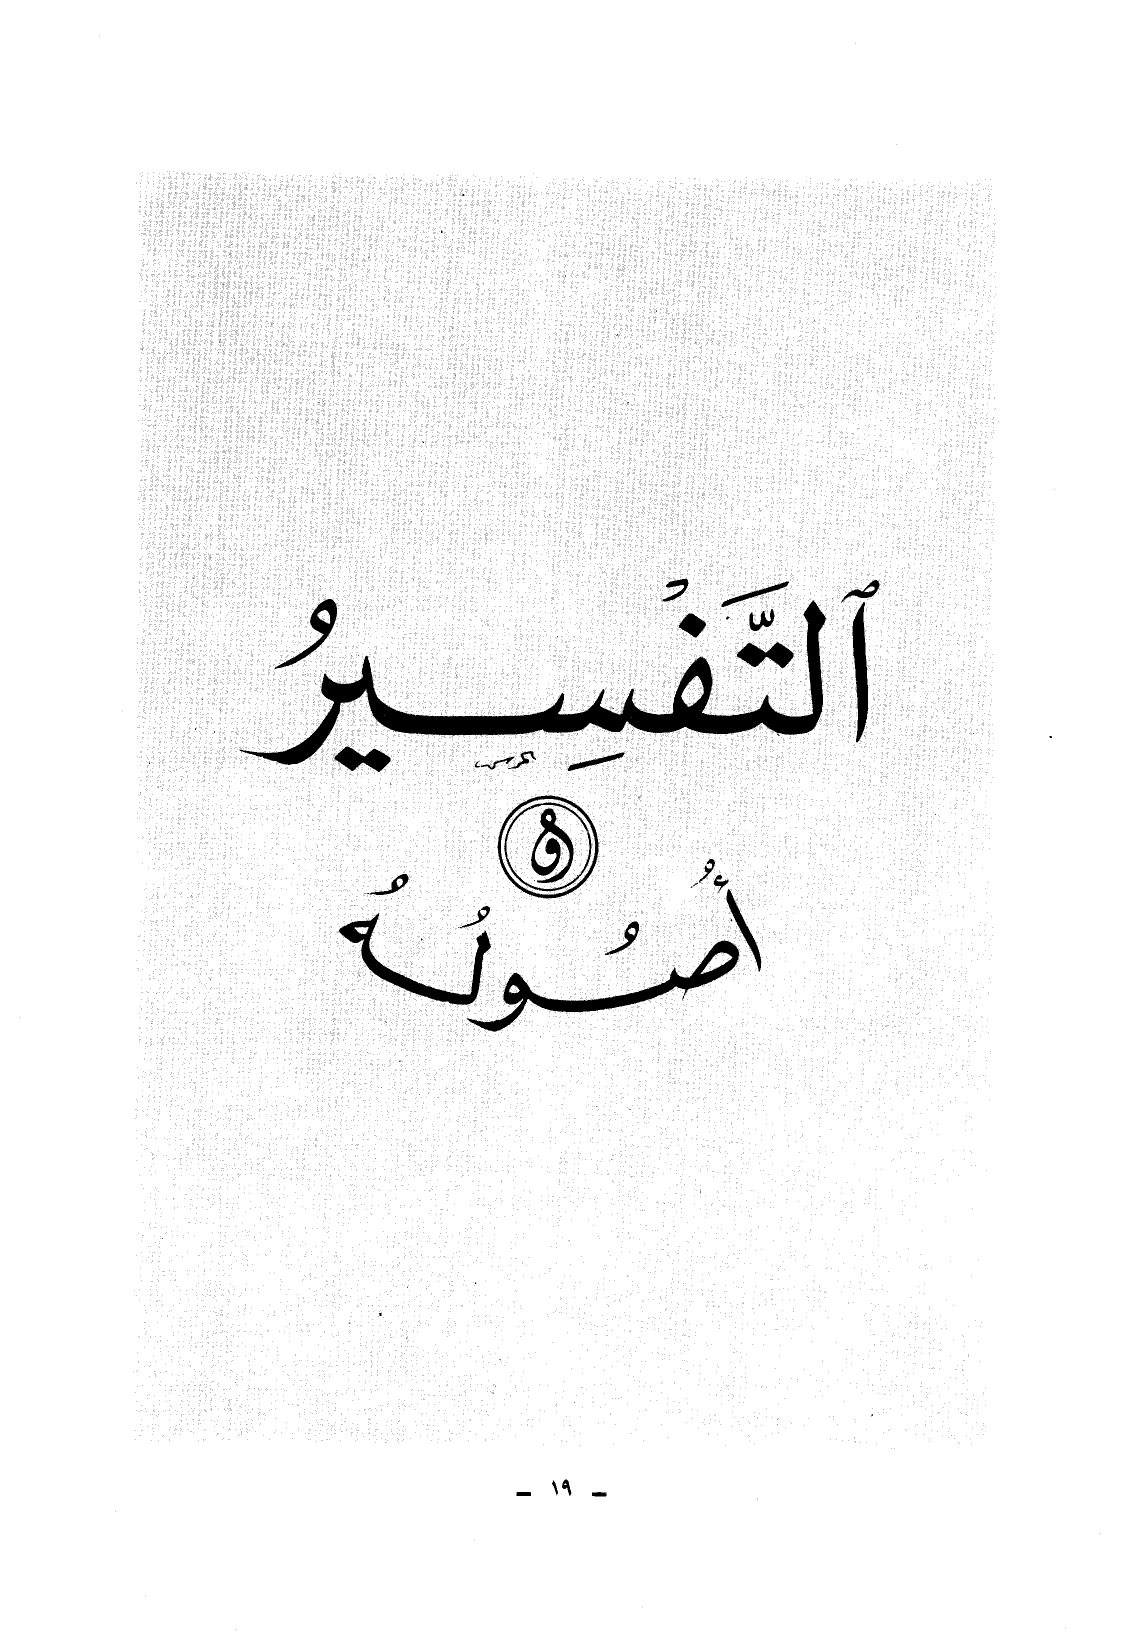 ٱلتَّفْسِيرُ
و
أُصُولُهُ
- ١٩ -